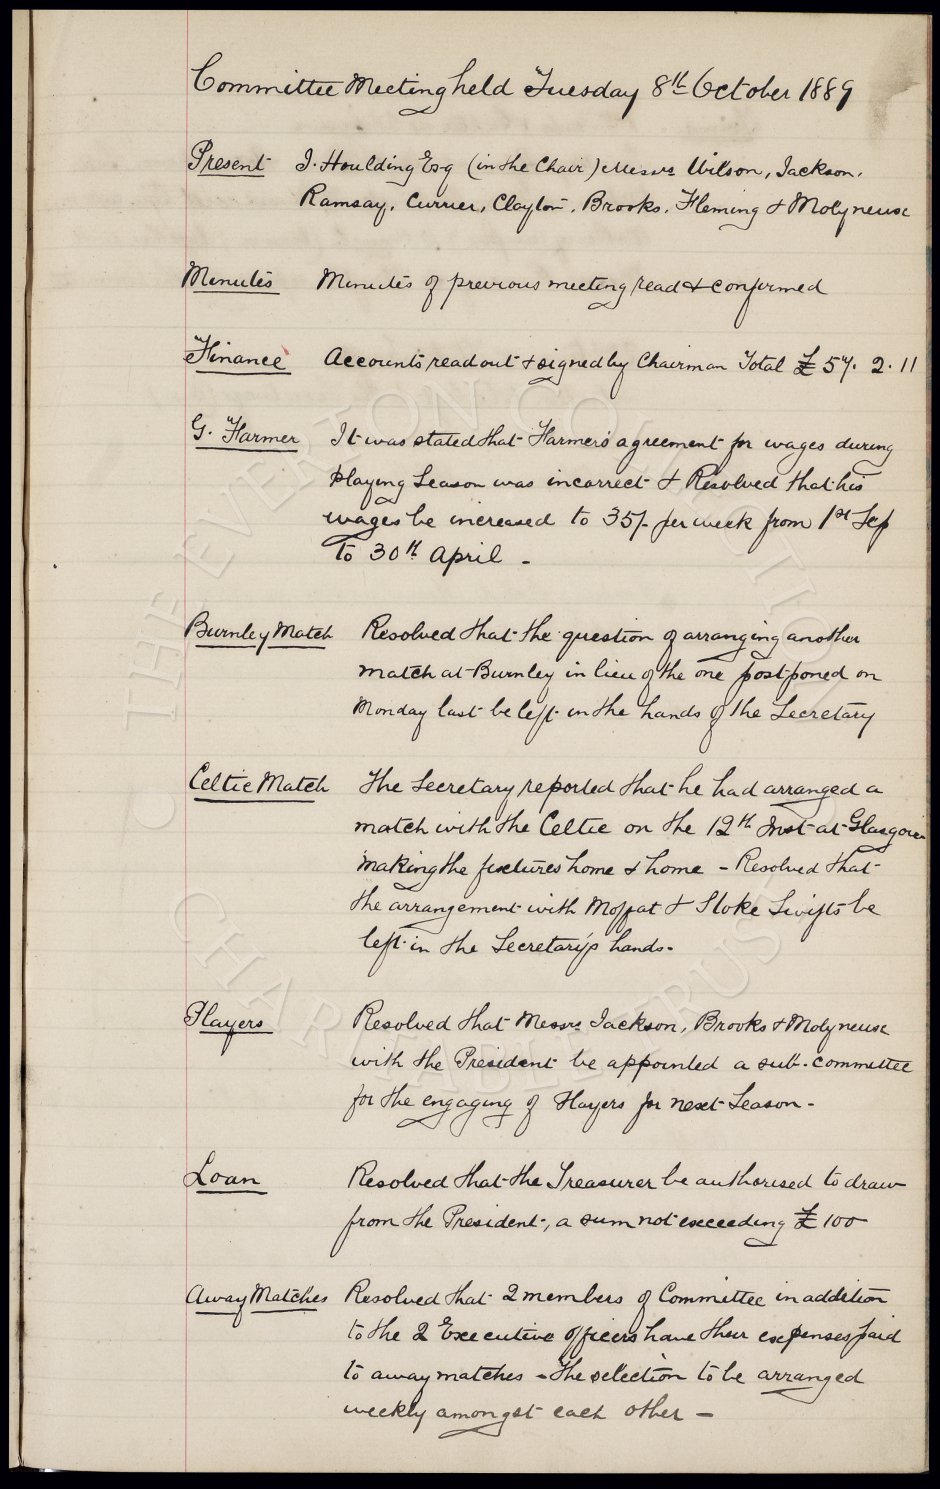 Committee Meeting held Tuesday 8th October 1889
Present J. Houlding Esq (in the Chair) Messrs Wilson, Jackson,
Ramsay, Currier, Clayton, Brooks, Fleming & Molyneux
Minutes Minutes of previous meeting read & confirmed
Finance Accounts read out & signed by Chairman Total £57. 2. 11
G. Farmer It was stated that Farmer's agreement for wages during
playing Season was incorrect & Resolved that his
wages be increased to 35/- per week from 1st Sep
to 30th April -
Burnley Match Resolved that the question of arranging another
match at Burnley in lieu of the one postponed on
Monday last be left in the hands of the Secretary
Celtic Match The Secretary reported that he had arranged a
match with the Celtic on the 12th Inst at Glasgow
making the fixtures home & home - Resolved that
the arrangement with Moffat & Stoke Swifts be
left in the Secretary's hands.
Players Resolved that Messrs Jackson, Brooks & Molyneux
with the President be appointed a sub-committee
for the engaging of Players for next Season -
Loan Resolved that the Treasurer be authorised to draw
from the President, a sum not exceeding £100
Away Matches Resolved that 2 members of Committee in addition
to the 2 Executive officers have their expenses paid
to away matches - the selection to be arranged
weekly amongst each other -
THE EVERTON COLLECTION
CHARITABLE TRUST